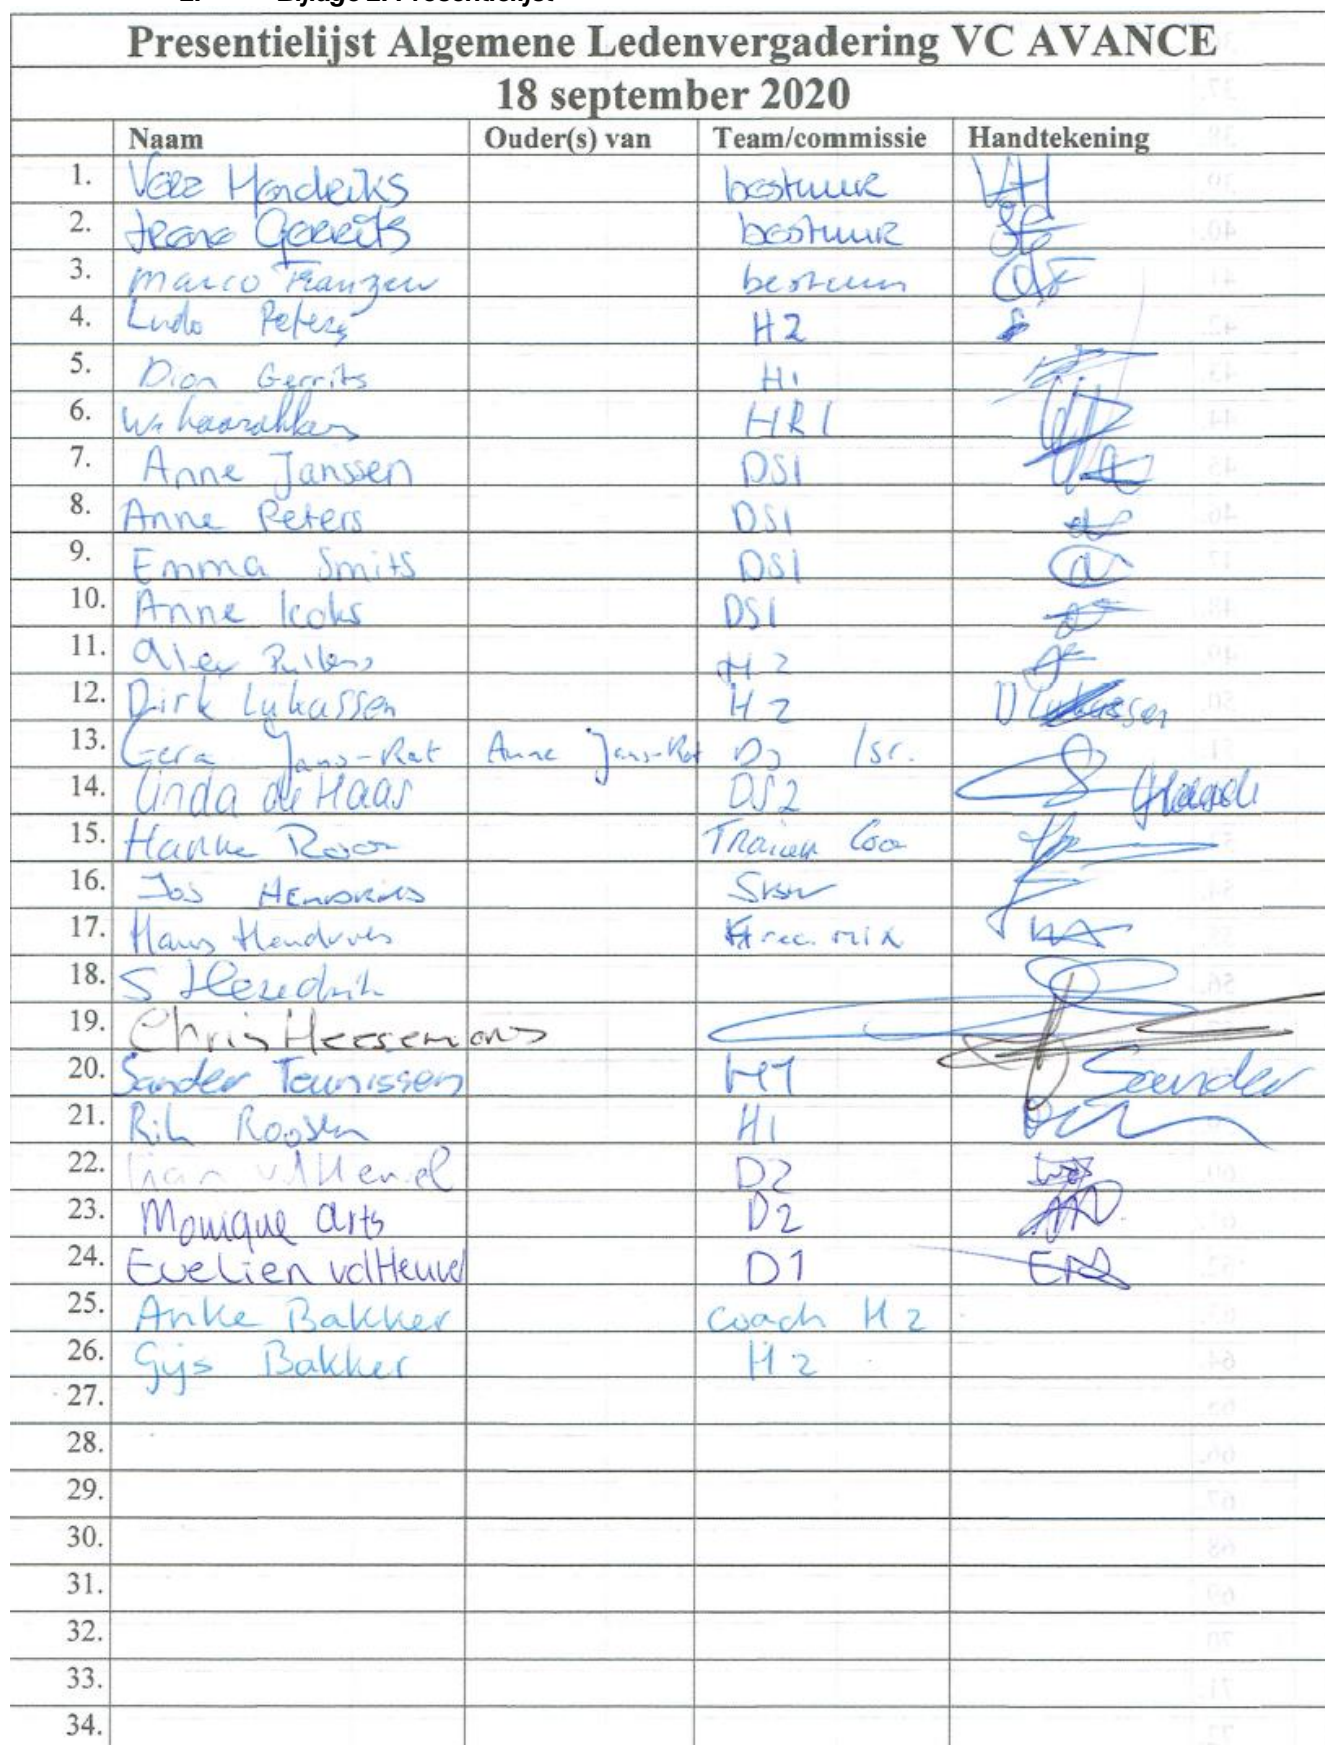 2. Bijlage 2: Presentielijst
Presentielijst Algemene Ledenvergadering VC AVANCE
18 september 2020
Naam Ouder(s) van Team/commissie Handtekening
1. Vera Hendriks bestuur VH
2. Gerrits bestuur
3. Marco Franzen bestuur
4. Ludo Peters H2
5. Dion Gerrits H1
6. HR1
7. Anne Janssen DS1
8. Anne Peters DS1
9. Emma Smits DS1
10. Anne Koks DS1
11. H2
12. Dirk Lukassen H2 D Lukassen
13. Gera Jans-Rat Anne Jans-Rat D2 /sr.
14. Linda de Haas DS2
15. Hanke
16. Jos Hendriks
17. Hans Hendriks rec. mix
18. S
19. Chris Heesemans
20. Sander Teunissen H1 Sander
21. Rik Roosen H1
22. D2
23. Monique Arts D2
24. Evelien vdHeuvel D1
25. Anke Bakker coach H2
26. Gijs Bakker H2
27.
28.
29.
30.
31.
32.
33.
34.